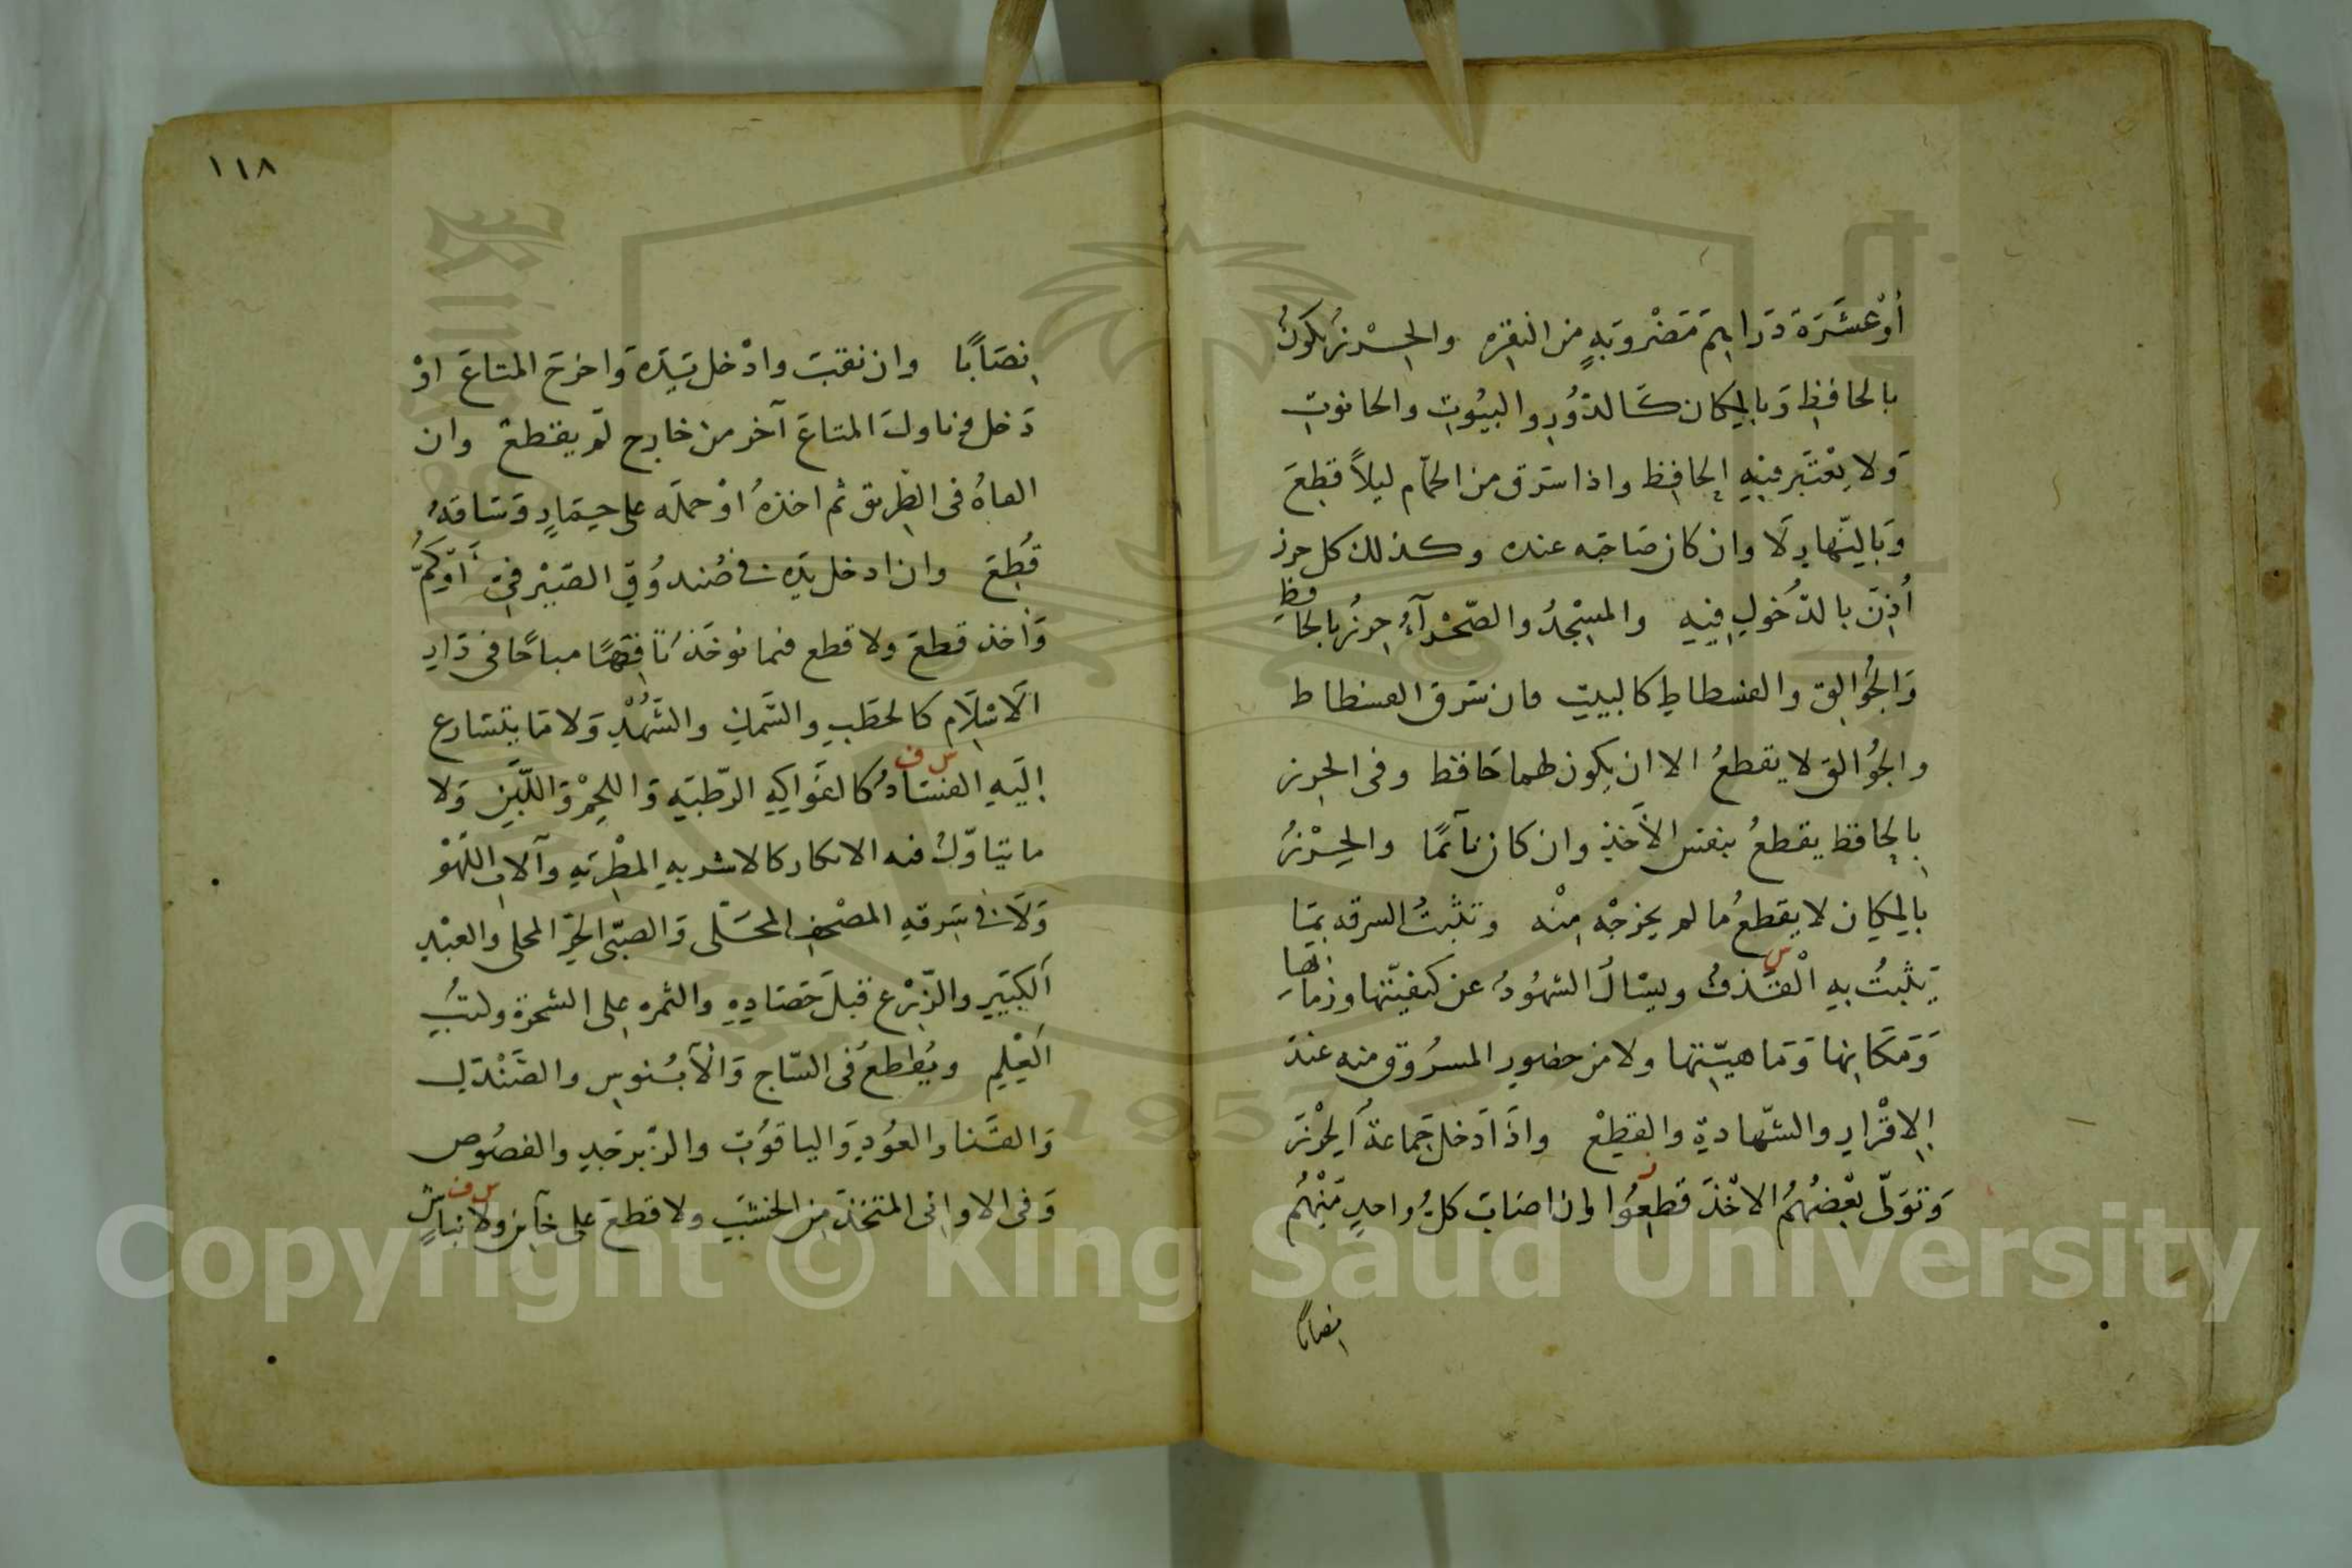 أوْ عَشَرَةَ دَرَاهِمَ مَضْرُوبَةٍ من النقره والحِرْزُ يكونُ
بالحافظِ وَبالمكان كَالدُّورِ والبيُوتِ والحانوتِ
وَلا يُعْتَبر فيْهِ الحافِظ واذا سَرَق من الحمّام ليلاً قطِعَ
وَبالنّهارِ لَا وان كان صَاحبه عنده وكذلك كل حرز
أُذِنَ بالدّخُولِ فيهِ والمسْجِدُ والصّحْرآءُ حِرزُ بالحافظِ
وَالجُوالِق والفسطاطِ كالبيتِ فان سَرَق الفسطاط
والجُوالق لا يقطعُ الا ان يكون لهما حَافظ وفى الحِرز
بالحافظ يقطعُ بنفس الأخذِ وان كان نآئمًا والحِرْزُ
بالمكان لا يقطعُ ما لم يخرجْه مِنْه وتثبتُ السرقه بمَا
يَثْبتُ بهِ الْقَذفُ ويسْالُ الشهُودُ عن كيفيّتها وزمانها
س
وَمَكَانِها وَمَاهيّتها ولا من حضورِ المسرُوق منه عندَ
الاِقْرارِ والشّهادةِ والقطْعِ واذَا دَخل جَماعةٌ الحْرْزَ
وَتوَلّى بعْضُهُمُ الاخْذَ قطعُوا ان اصَابَ كلُّ واحدٍ مِنْهُم
نصابا
١١٨
نِصَابًا وان نقبَ وادْخل يَدَه وَاخرجَ المتاعَ اوْ
دَخل فناولَ المتاعَ آخر من خارج لم يقطعْ وان
القاهُ فى الطريق ثم اخذهُ اوْ حملَه على حِمَارٍ وَسَاقَهُ
قُطِعَ وان ادخل يدَه فى صُندوُقِ الصَّيْرفِىّ أوْ كُمِّ
وَأخذ قطعَ ولا قطع فيما يُوخَذ تَافِهًا مباحًا فى دَارِ
الَاسْلَام كالحطَبِ والسَّمَكِ والشّهْدِ وَلا مَا يتسَارع
إليَهِ الفسَادُ كالفوَاكِهِ الرّطبَةِ وَاللحِمْ وَاللّبَنِ وَلا
س ف
ما يتاوّلُ فيه الانكار كالاشربهِ المطْرِبَةِ وآلاتِ اللّهْوْ
وَلَا فى سَرِقهِ المصْحفِ المحَلّى وَالصبّى الحُرّ المحلى والعبْدِ
الكبَيرِ والزَّرْع قبلَ حَصَادِهِ والثمره على الشجرة وكتبُ
العِلْمِ ويُقطعُ فى السّاج وَالْآبُنوسِ والصَّنْدَلِ
وَالقَنا والعوُدِ وَالياقوُتِ والزّبرجَدِ والفصُوص
وَفى الاوانِى المتخَذَةِ مِن الخشبَ ولا قطعَ على خآين ولا نبّاشٍ
س ف